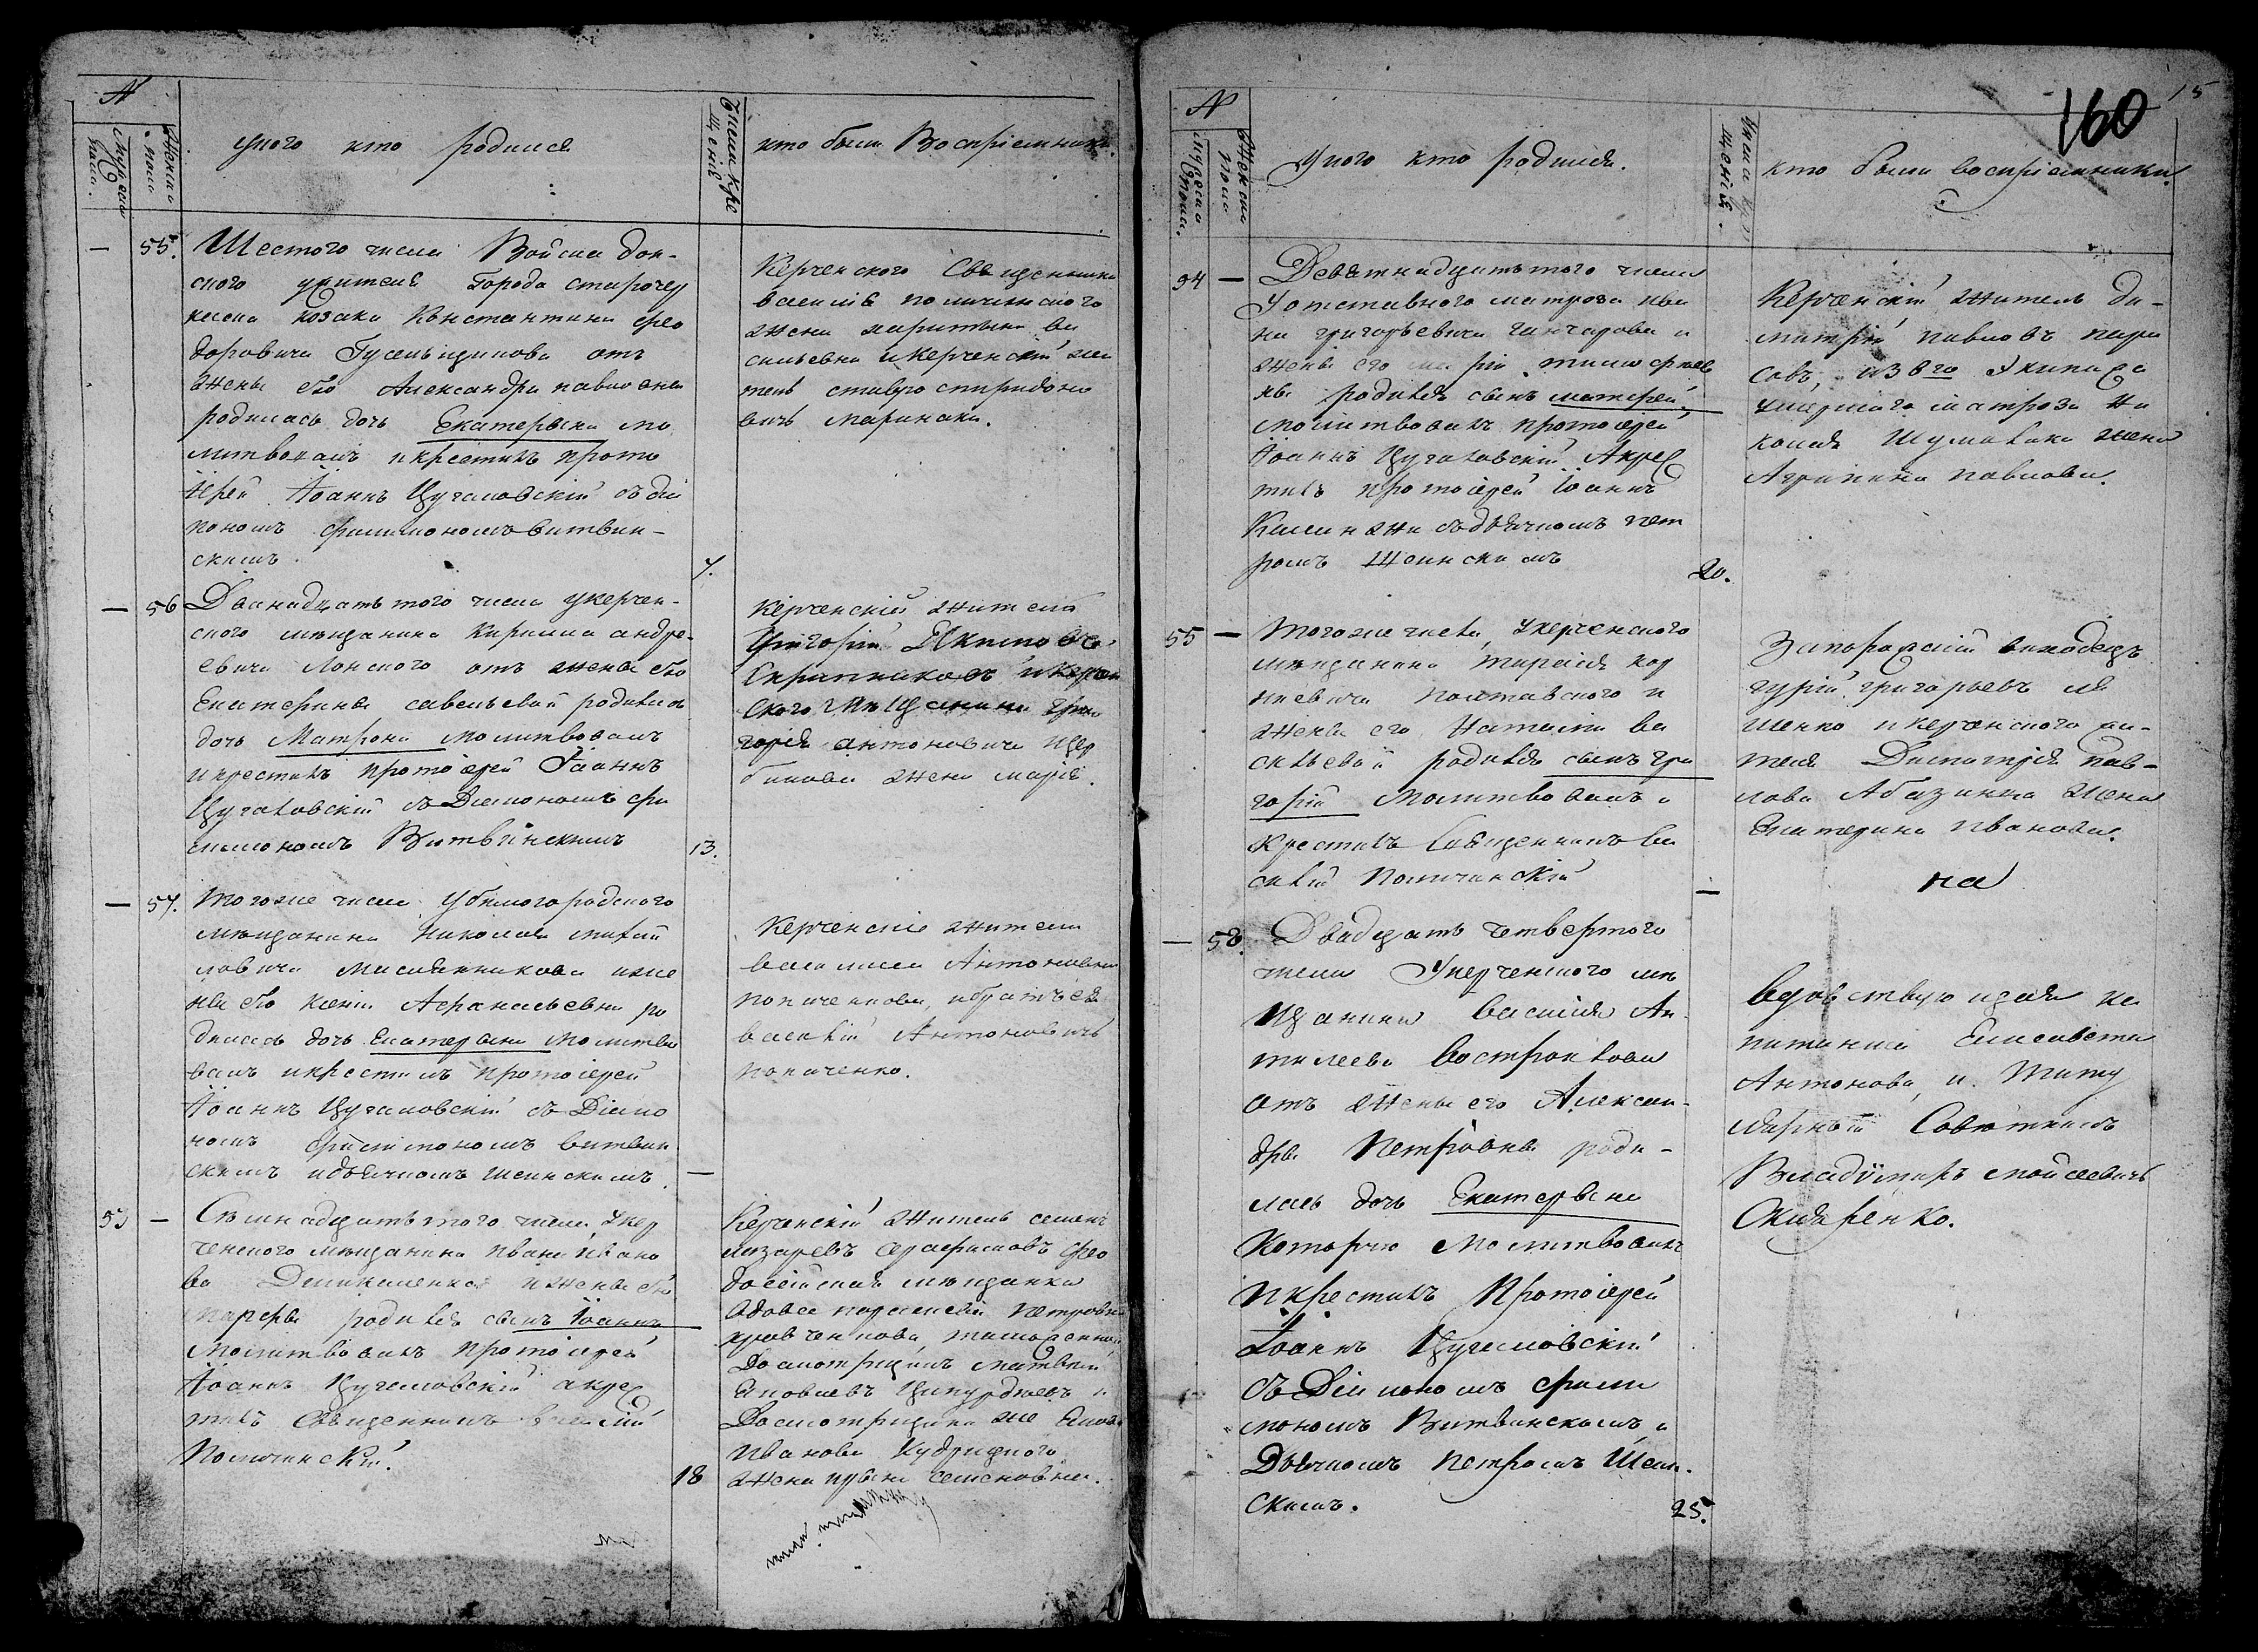 №
Мужеска пола.
Женска пола
у кого кто родился
Числа кре
щенія
кто были Воспріемники.
— 55. Шестого числа Войска Дон-
ского жителя Города старочер
каска козака Константина Фео
доровича Гусельщикова отъ
жены его Александры павловны
родилась дочь Екатерина мо
литвовалъ икрестилъ прото
іерей Іоаннъ Цугаловскій съ діа
кономъ филимономъ витвин-
скимъ.
7.
Керченского Священника
василія поличинского
жена харитына ва
сильевна икерченскій жи
тель ставро спиридоно
вичъ маринаки.
— 56 Дванадцать того числа укерчен-
ского мещанина Кирилла андре-
евича Лонского отъ жены его
Екатерины савельевой родилась
дочь Матрона молитвовалъ
икрестилъ протоіерей Іоаннъ
Цугаловскій съ Діакономъ фи
лимономъ Витвинскимъ
13.
Керченскій житель
Григорій
Скрыпниковъ икерчен
ского мещанина Гри
горія антоновича щер
бакова жена марія.
— 57. Того же числа убелогородского
мещанина Николая михай
ловича масленникова ижe
ны его ксеніи Афанасьевны ро
дилась дочь Екатерина молитво
валъ икрестилъ протоіерей
Іоаннъ Цугаловскій съ Діако
номъ филимономъ витвин
скимъ идьячкомъ шеинскимъ.
—
Керченскіе жители
василиса Антоновна
попиченкова, ибратъ ея
василій Антоновичъ
попиченко.
53 — Семнадцать того числа укер
ченского мещанина Ивана Ивано
ва ижены его
марфы родился сынъ Іоаннъ
молитвовалъ протоіерей
Іоаннъ Цугаловскій акрес
тилъ Священникъ василій
Поличинскій.
18
Керченскій житель семенъ
лазаревъ серафимовъ Фео
досійская мещанка
вдова Петровна
Матвей
Иванова
жена семеновна.
160
15
№
Мужеска пола.
Женска пола
У кого кто родился.
Числа кре
щенія.
кто были воспріемники.
54 — Деветнадцать того числа
Уотставного матроза Ива
на григорьевича ганчарова и
жены его маріи тимофеев
ны родился сынъ матфей
молитвовалъ протоіерей
Іоаннъ Цугаловскій Акрес
тилъ протоіерей Іоаннъ
Килинджи съдьячкомъ пет
ромъ Шеинскимъ
20.
Керченскій житель ди-
митрій павловъ пара
совъ, из 8го Экипажа
умершаго матроза Ни
колая Шумакова жена
Агрипина павлова.
55 — Того же числа, укерченского
мещанина Тирентія кор
ниевича полтавского и
жены его Наталіи ва
сильевой родился сынъ гри
горій Молитвовалъ и
крестилъ Священникъ Ва
силій Поличинскій
—
Запорожскій выходецъ
гурій григорьевъ ля
шенко икерченского жи-
теля Димитрія пав-
лова Абазинка жена
Екатерина Иванова.
на
— 58. Двадцать четвертого
числа Укерченского ме
щанина василія Ан
тилеева Вострокова
отъ жены его Алексан-
дры Петровны роди-
лась дочь Екатерина
Которую Молитвовалъ
икрестилъ Протоіерей
Іоаннъ Цугаловскій
съ Діакономъ фили
мономъ Витвинскимъ и
Дьячкомъ Петромъ Шеин-
скимъ.
25.
Вдовствующая ка
питанша Елисавета
Антонова, и Титу
лярный Советникъ
Владимиръ мойсеевичъ
Скляренко.